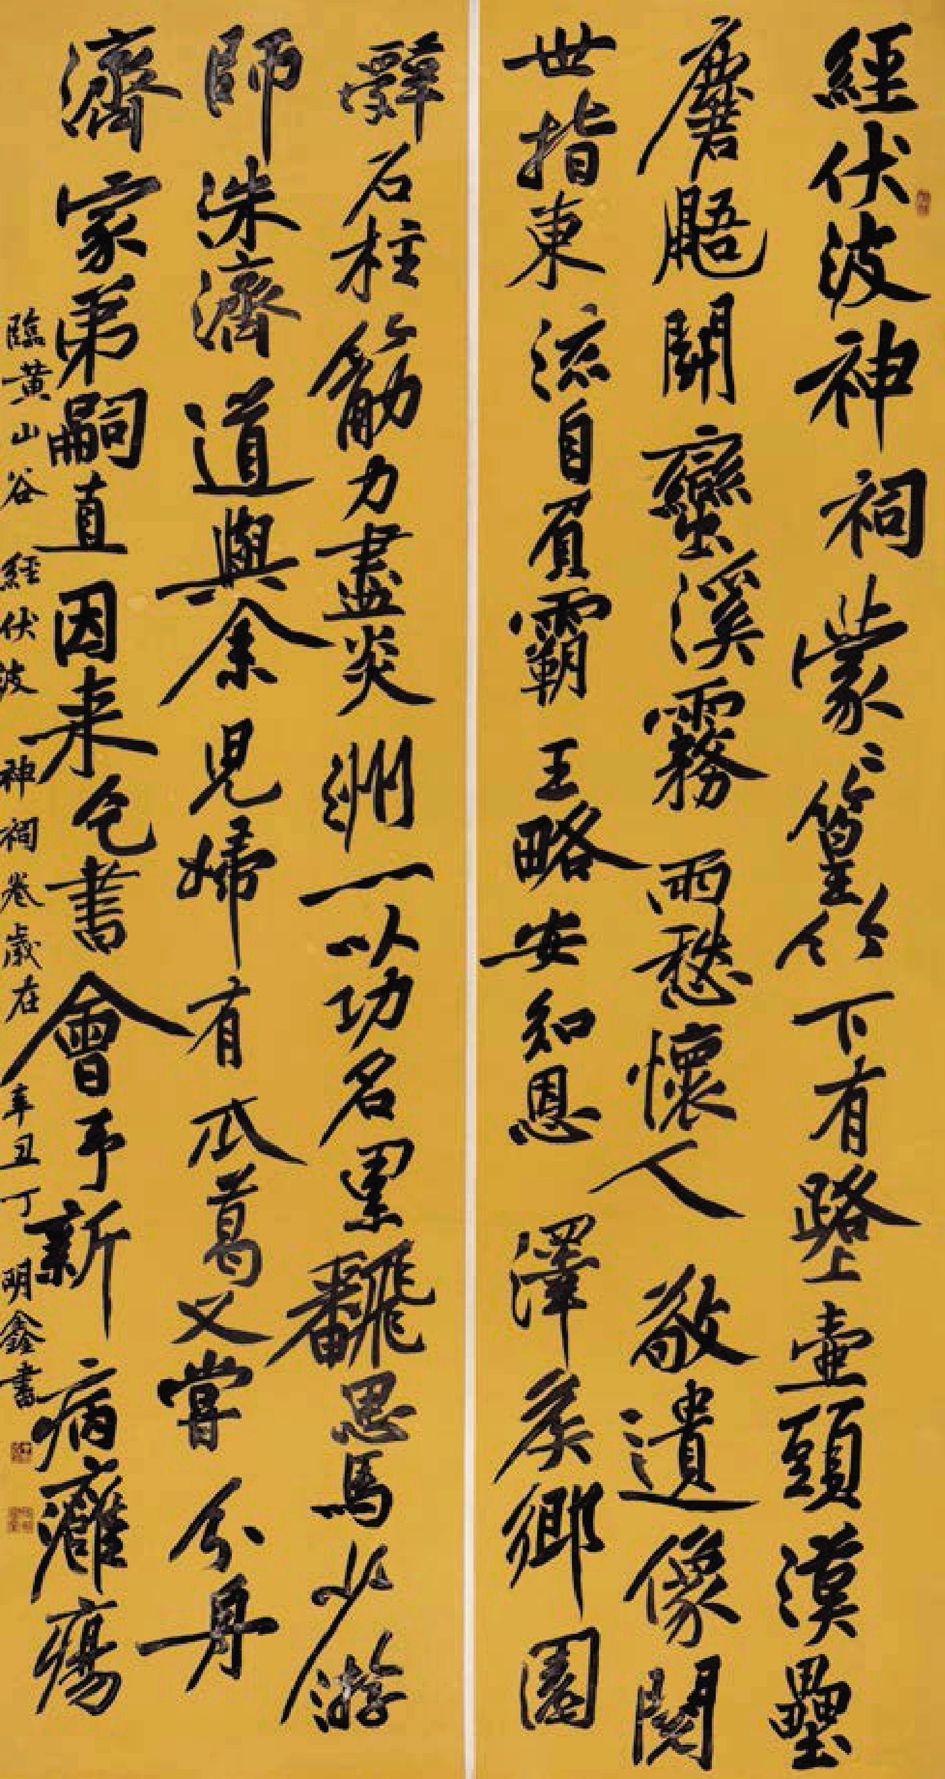 經伏波神祠蒙〻篁竹下有路上壺頭漢壘
麏鼯鬥蠻溪霧雨愁懷人敬遺像閱
世指東流自負霸王略安知恩澤侯鄉園
辭石柱筋力盡炎洲一以功名累翻思馬少游
師洙濟道與余兒婦有瓜葛又嘗分舟
濟家弟嗣直因来乞書會予新病癰瘍
臨黃山谷經伏波神祠卷歲在辛丑丁明鑫書